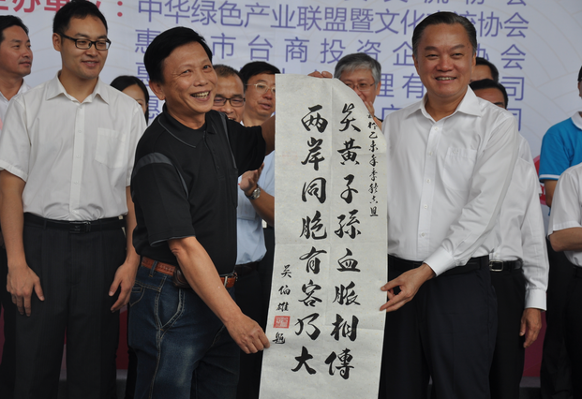 办单位：
中华绿色产业联盟暨文化 流协会
惠 市台商投资企 协会
理有 司
乙未年季秋吉旦
炎黄子孫血脈相傳
两岸同胞有容乃大
吴伯雄 题